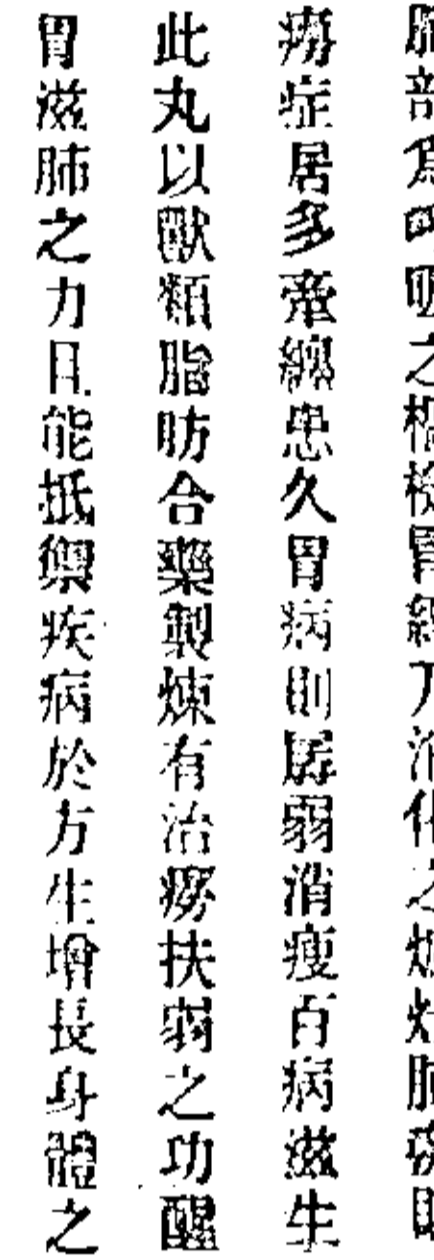 肺部為呼吸之樞機胃經乃消化之爐灶肺癆則
癆症居多牽纏患久胃病則孱弱消瘦百病滋生
此丸以獸類脂肪合藥製煉有治癆扶弱之功醒
胃滋肺之力且能抵禦疾病於方生增長身體之